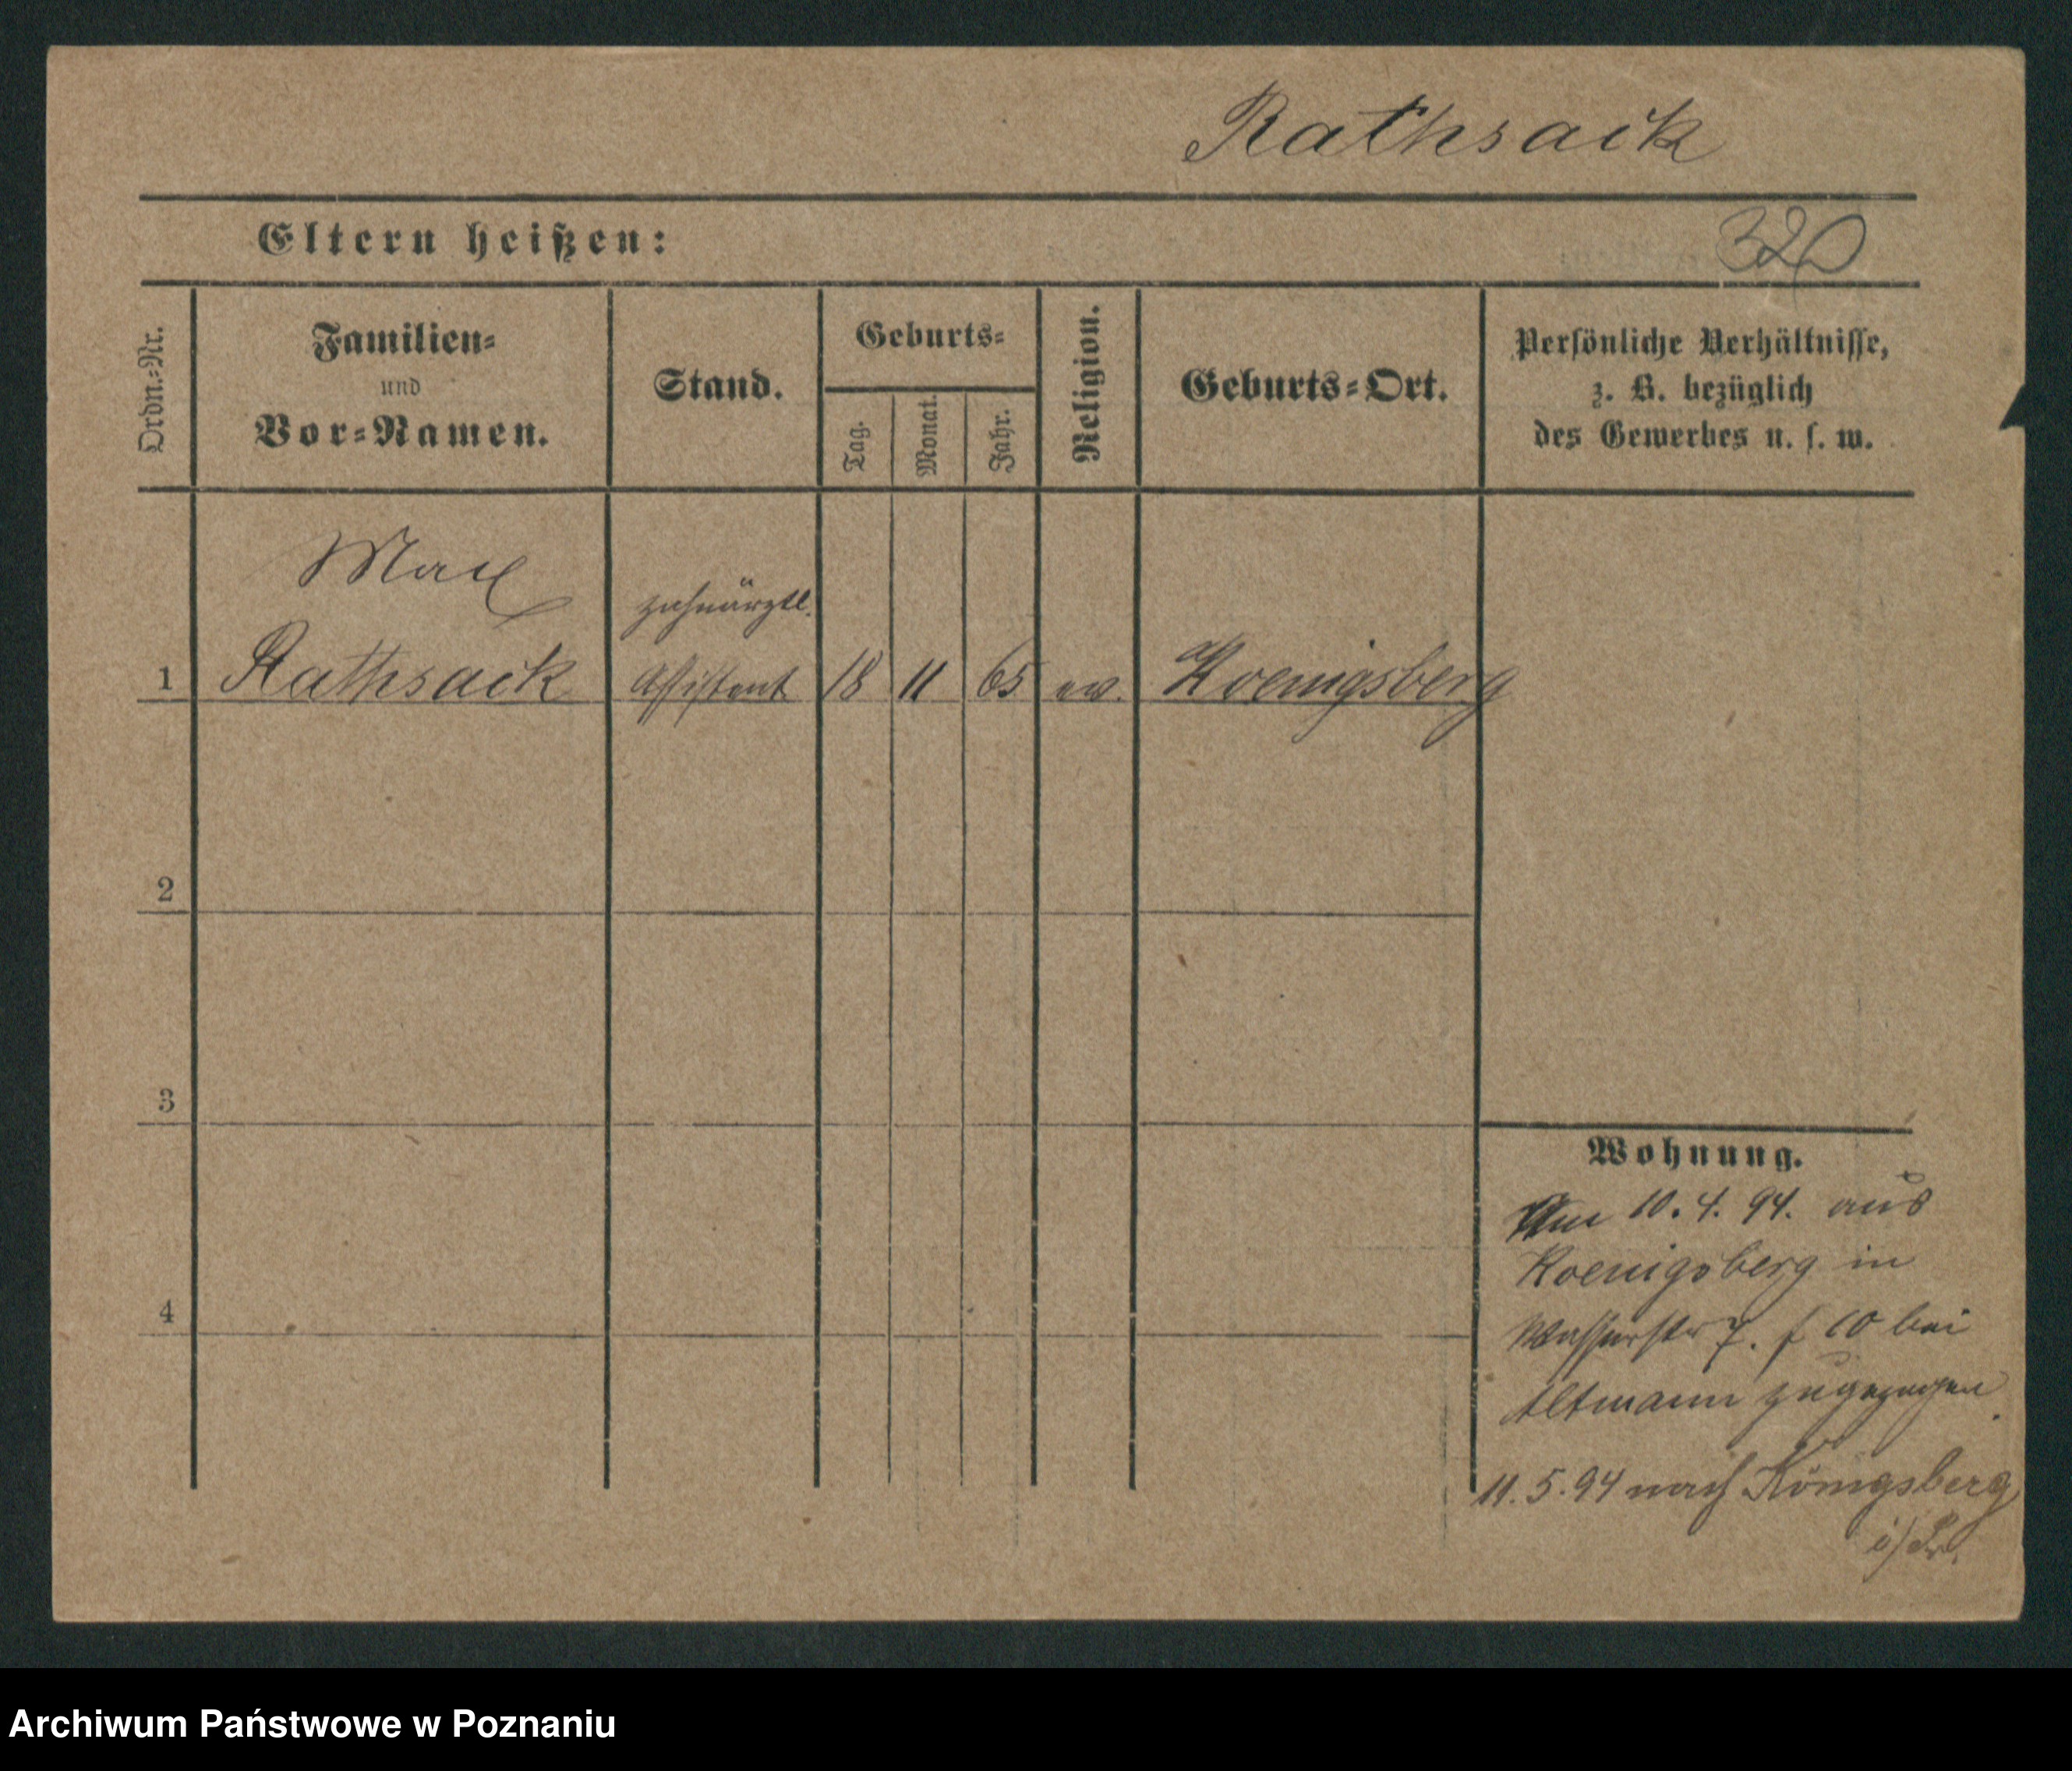 Rathsack
Eltern heißen:
320
Ordn.-Nr.
Familien-
und
Vor-Namen.
Stand.
Geburts-
Tag.
Monat.
Jahr.
Religion.
Geburts-Ort.
Persönliche Verhältnisse,
z. B. bezüglich
des Gewerbes u. s. w.
Max
zahnärztl.
1 Rathsack Assistent 18 11 65 ev. Koenigsberg
2
3
4
Wohnung.
Am 10. 4. 94. aus
Koenigsberg in
Wasserstr 7. f 10 bei
Altmann zugezogen.
11. 5. 94 nach Königsberg
i/Pr.
Archiwum Państwowe w Poznaniu